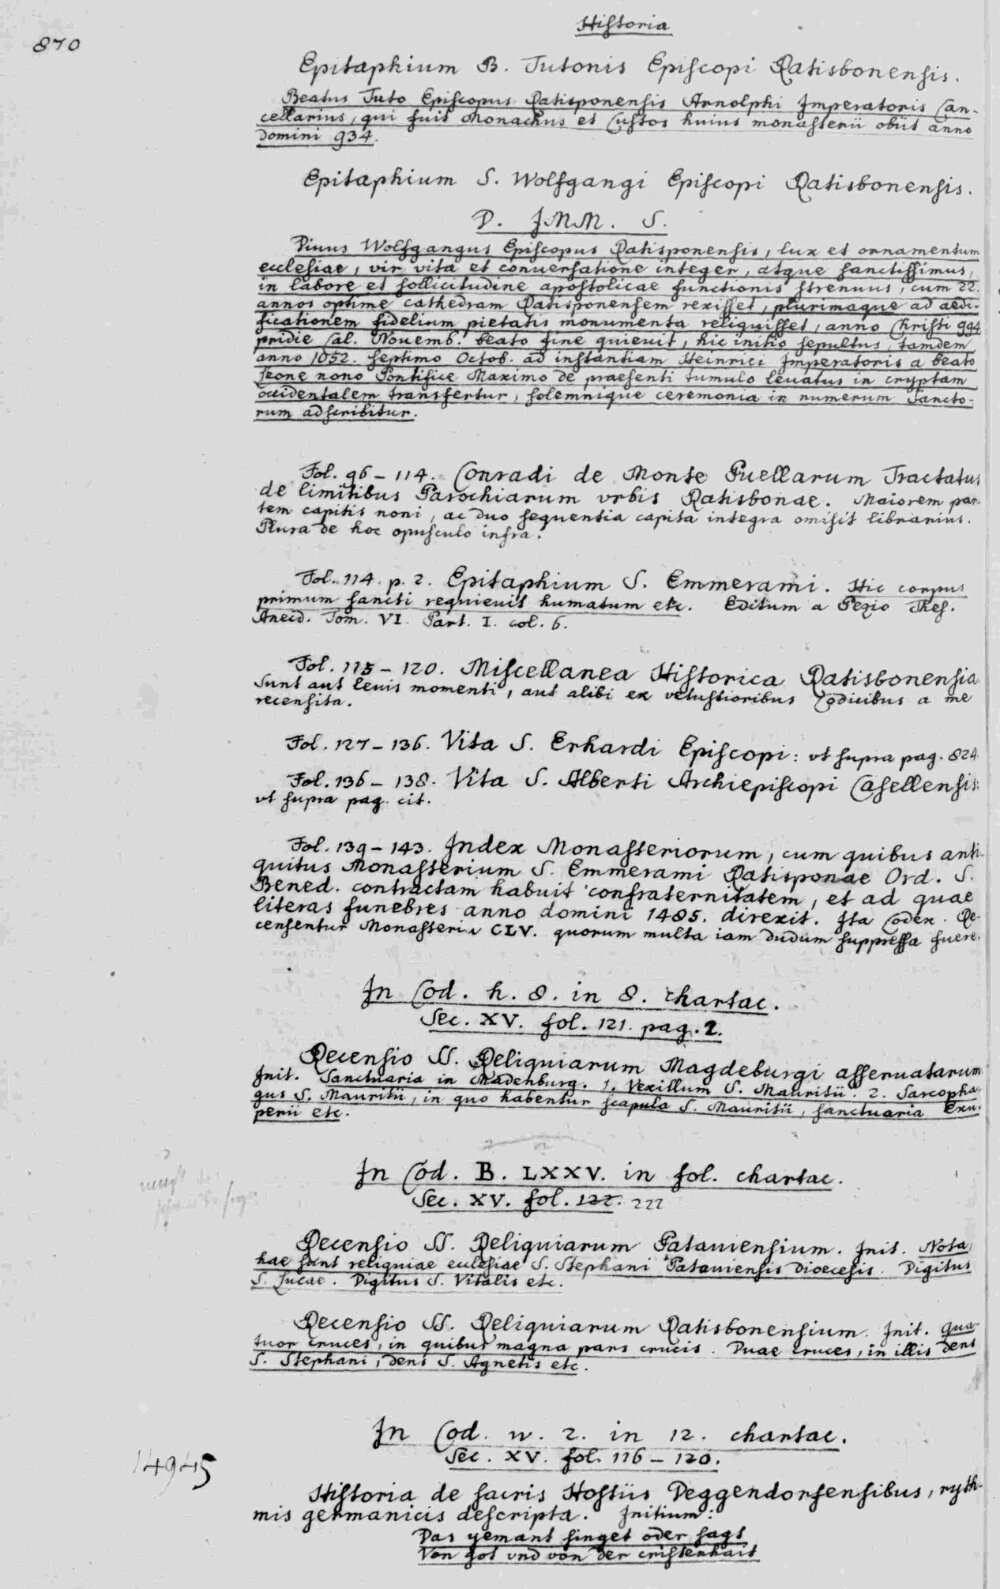 Historia
870
Epitaphium B. Tutonis Episcopi Ratisbonensis.
Beatus Tuto Episcopus Ratisponensis Arnolphi Imperatoris Can-
cellarius, qui fuit Monachus et Custos huius monasterii obiit anno
domini 934.
Epitaphium S. Wolfgangi Episcopi Ratisbonensis.
D. IMM. S.
Diuus Wolfgangus Episcopus Ratisponensis, lux et ornamentum
ecclesiae, vir vita et conuersatione integer, atque sanctissimus,
in labore et sollicitudine apostolicae functionis strenuus, cum 22.
annos optime cathedram Ratisponensem rexisset, plurimaque ad aedi-
ficationem fidelium pietatis monumenta reliquisset, anno Christi 994
pridie Cal. Nouemb. beato fine quieuit, hic initio sepultus, tamdem
anno 1052. septimo Octob. ad instantiam Heinrici Imperatoris a beato
Leone nono Pontifice Maximo de praesenti tumulo leuatus in cryptam
occidentalem transfertur, solemnique ceremonia in numerum Sancto-
rum adscribitur.
Fol. 96 – 114. Conradi de Monte Puellarum Tractatus
de limitibus Parochiarum vrbis Ratisbonae. Maiorem par-
tem capitis noni, ac duo sequentia capita integra omisit librarius.
Plura de hoc opusculo infra.
Fol. 114. p. 2. Epitaphium S. Emmerami. Hic corpus
primum sancti requieuit humatum etc. Editum a Pezio Thes.
Anecd. Tom. VI. Part. I. col. 6.
Fol. 115 – 120. Miscellanea Historica Ratisbonensia
Sunt aut leuis momenti, aut alibi ex vetustioribus Codicibus a me
recensita.
Fol. 127 – 136. Vita S. Erhardi Episcopi: vt supra pag. 824
Fol. 136 – 138. Vita S. Alberti Archiepiscopi Casellensis:
vt supra pag. cit.
Fol. 139 – 143. Index Monasteriorum, cum quibus anti-
quitus Monasterium S. Emmerami Ratisponae Ord. S.
Bened. contractam habuit confraternitatem, et ad quae
literas funebres anno domini 1485. direxit. Ita Codex. Re-
censentur Monasteria CLV. quorum multa iam dudum suppressa fuere.
In Cod. h. 8. in 8. chartac.
Sec. XV. fol. 121. pag. 2.
Recensio SS. Reliquiarum Magdeburgi asseruatarum
Init. Sanctuaria in Madenburg. 1. Vexillum S. Mauritii. 2. Sarcopha-
gus S. Mauritii, in quo habentur scapula S. Mauritii, sanctuaria Exu-
perii etc.
In Cod. B. LXXV. in fol. chartac.
Sec. XV. fol. 122. 222
Recensio SS. Reliquiarum Patauiensium. Init. Nota
hae sunt reliquiae ecclesiae S. Stephani Patauiensis Dioecesis. Digitus
S. Lucae. Digitus S. Vitalis etc.
Recensio SS. Reliquiarum Ratisbonensium. Init. Qua-
tuor cruces, in quibus magna pars crucis. Duae cruces, in illis dens
S. Stephani, dens S. Agnetis etc.
In Cod. w. 2. in 12. chartac.
Sec. XV. fol. 116 – 120.
14945
Historia de sacris Hostiis Deggendorfensibus, ryth-
mis germanicis descripta. Initium:
Das yemant singet oder sagt
Von got vnd von der cristenhait